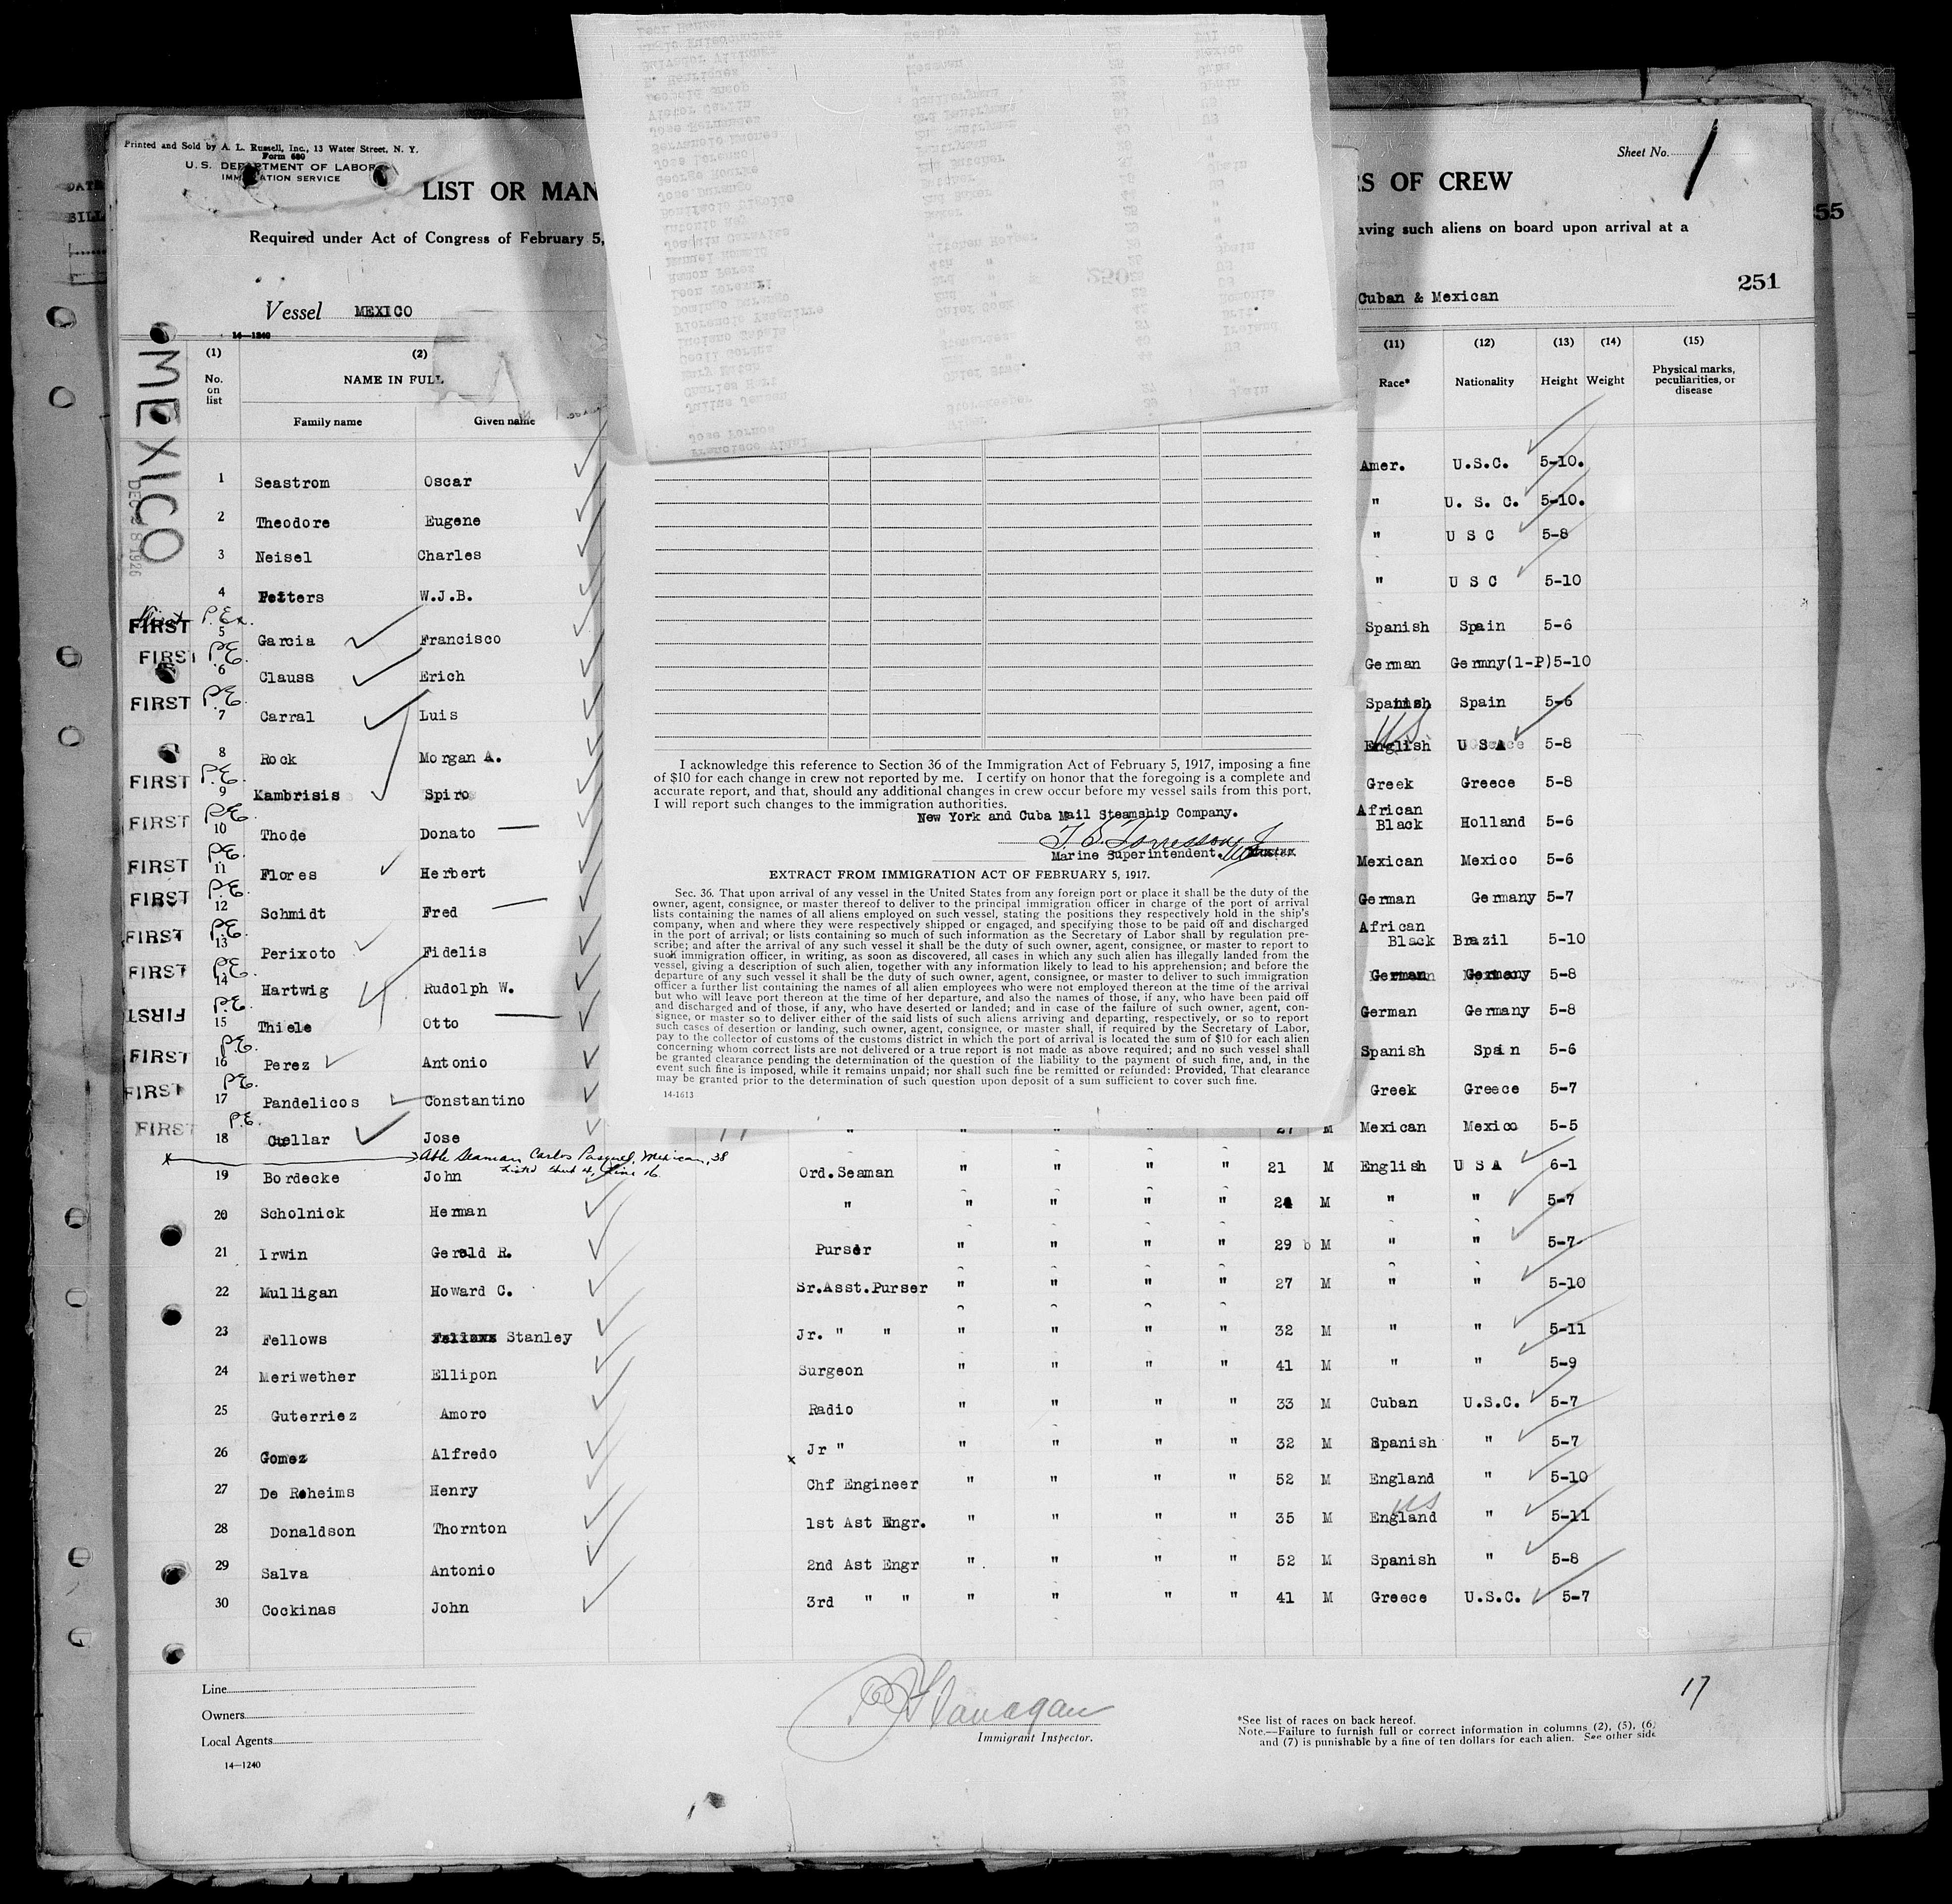 Printed and Sold by A. L. Russell, Inc., 13 Water Street, N. Y.
Form 680
U. S. DEPARTMENT OF LABOR
IMMIGRATION SERVICE
LIST OR MAN
RS OF CREW
Sheet No. 1
Required under Act of Congress of February 5,
aving such aliens on board upon arrival at a
55
Vessel MEXICO
Cuban & Mexican
251
250
14—1240
MEXICO
DEC 8 1926
(1) (2) (11) (12) (13) (14) (15)
No. on list NAME IN FULL Race* Nationality Height Weight Physical marks, peculiarities, or disease
Family name Given name
1 Seastrom Oscar Amer. U.S.C. 5-10.
2 Theodore Eugene " U. S. C. 5-10.
3 Neisel Charles " U S C 5-8
4 Fetters W.J.B. " U S C 5-10
FIRST P.Ex. 5 Garcia Francisco Spanish Spain 5-6
FIRST P.E. 6 Clauss Erich German Germny(1-P)5-10
FIRST P.E. 7 Carral Luis Spanish Spain 5-6
8 Rock Morgan A. English US U S A 5-8
FIRST P.E. 9 Kambrisis Spiro Greek Greece 5-8
FIRST P.E. 10 Thode Donato African Black Holland 5-6
FIRST P.E. 11 Flores Herbert Mexican Mexico 5-6
FIRST P.E. 12 Schmidt Fred German Germany 5-7
FIRST P.E. 13 Perixoto Fidelis African Black Brazil 5-10
FIRST P.E. 14 Hartwig Rudolph W. German Germany 5-8
FIRST P.E. 15 Thiele Otto German Germany 5-8
FIRST P.E. 16 Perez Antonio Spanish Spain 5-6
FIRST P.E. 17 Pandelicos Constantino Greek Greece 5-7
FIRST P.E. 18 Cuellar Jose " " " " " 27 M Mexican Mexico 5-5
x Able Seaman Carlos Pasquel, Mexican, 38
Listed sheet 4, line 16
19 Bordecke John Ord.Seaman " " " " 21 M English U S A 6-1
20 Scholnick Herman " " " " " 24 M " " 5-7
21 Irwin Gerald R. Purser " " " " 29 M " " 5-7
22 Mulligan Howard C. Sr.Asst.Purser " " " " 27 M " " 5-10
23 Fellows Stanley Jr. " " " " " " 32 M " " 5-11
24 Meriwether Ellipon Surgeon " " " " 41 M " " 5-9
25 Guterriez Amoro Radio " " " " 33 M Cuban U.S.C. 5-7
26 Gomez Alfredo x Jr " " " " " 32 M Spanish " 5-7
27 De Roheims Henry Chf Engineer " " " " 52 M England " 5-10
28 Donaldson Thornton 1st Ast Engr. " " " " 35 M England US " 5-11
29 Salva Antonio 2nd Ast Engr " " " " 52 M Spanish " 5-8
30 Cockinas John 3rd " " " " " " 41 M Greece U.S.C. 5-7
I acknowledge this reference to Section 36 of the Immigration Act of February 5, 1917, imposing a fine
of $10 for each change in crew not reported by me. I certify on honor that the foregoing is a complete and
accurate report, and that, should any additional changes in crew occur before my vessel sails from this port,
I will report such changes to the immigration authorities.
New York and Cuba Mail Steamship Company.
Marine Superintendent. Master
EXTRACT FROM IMMIGRATION ACT OF FEBRUARY 5, 1917.
Sec. 36. That upon arrival of any vessel in the United States from any foreign port or place it shall be the duty of the
owner, agent, consignee, or master thereof to deliver to the principal immigration officer in charge of the port of arrival
lists containing the names of all aliens employed on such vessel, stating the positions they respectively hold in the ship's
company, when and where they were respectively shipped or engaged, and specifying those to be paid off and discharged
in the port of arrival; or lists containing so much of such information as the Secretary of Labor shall by regulation pre-
scribe; and after the arrival of any such vessel it shall be the duty of such owner, agent, consignee, or master to report to
such immigration officer, in writing, as soon as discovered, all cases in which any such alien has illegally landed from the
vessel, giving a description of such alien, together with any information likely to lead to his apprehension; and before the
departure of any such vessel it shall be the duty of such owner, agent, consignee, or master to deliver to such immigration
officer a further list containing the names of all alien employees who were not employed thereon at the time of the arrival
but who will leave port thereon at the time of her departure, and also the names of those, if any, who have been paid off
and discharged and of those, if any, who have deserted or landed; and in case of the failure of such owner, agent, con-
signee, or master so to deliver either of the said lists of such aliens arriving and departing, respectively, or so to report
such cases of desertion or landing, such owner, agent, consignee, or master shall, if required by the Secretary of Labor,
pay to the collector of customs of the customs district in which the port of arrival is located the sum of $10 for each alien
concerning whom correct lists are not delivered or a true report is not made as above required; and no such vessel shall
be granted clearance pending the determination of the question of the liability to the payment of such fine, and, in the
event such fine is imposed, while it remains unpaid; nor shall such fine be remitted or refunded: Provided, That clearance
may be granted prior to the determination of such question upon deposit of a sum sufficient to cover such fine.
14-1613
Line
Owners
Local Agents
14—1240
Flanagan
Immigrant Inspector.
17
*See list of races on back hereof.
Note.—Failure to furnish full or correct information in columns (2), (5), (6)
and (7) is punishable by a fine of ten dollars for each alien. See other side